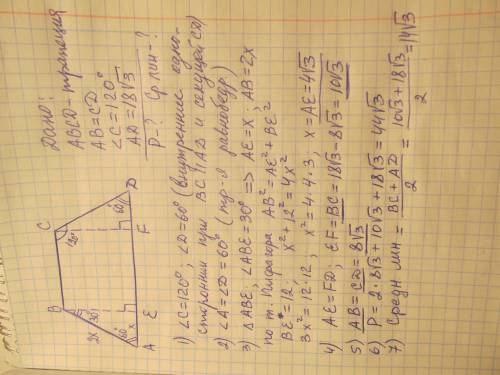 Дано:
ABCD-трапеция
AB=CD
∠C=120°
AD=18√3
P-? Ср лин-?
B
C
30°
120°
2x
60°
x
60°
A
E
F
D
1) ∠C=120°; ∠D=60° (внутренние одно-
сторонние при BC∥AD и секущей CD)
2) ∠A=∠D=60° (тр-я равнобедр.)
3) △ABE; ∠ABE=30° => AE=x, AB=2x
по т. Пифагора AB²=AE²+BE²
BE=12, x²+12²=4x²
3x²=12·12; x²=4·4·3, x=AE=4√3
4) AE=FD; EF=BC=18√3-8√3=10√3
5) AB=CD=8√3
6) P=2·8√3+10√3+18√3=44√3
7) Средн лин = BC+AD/2 = 10√3+18√3/2 = 14√3